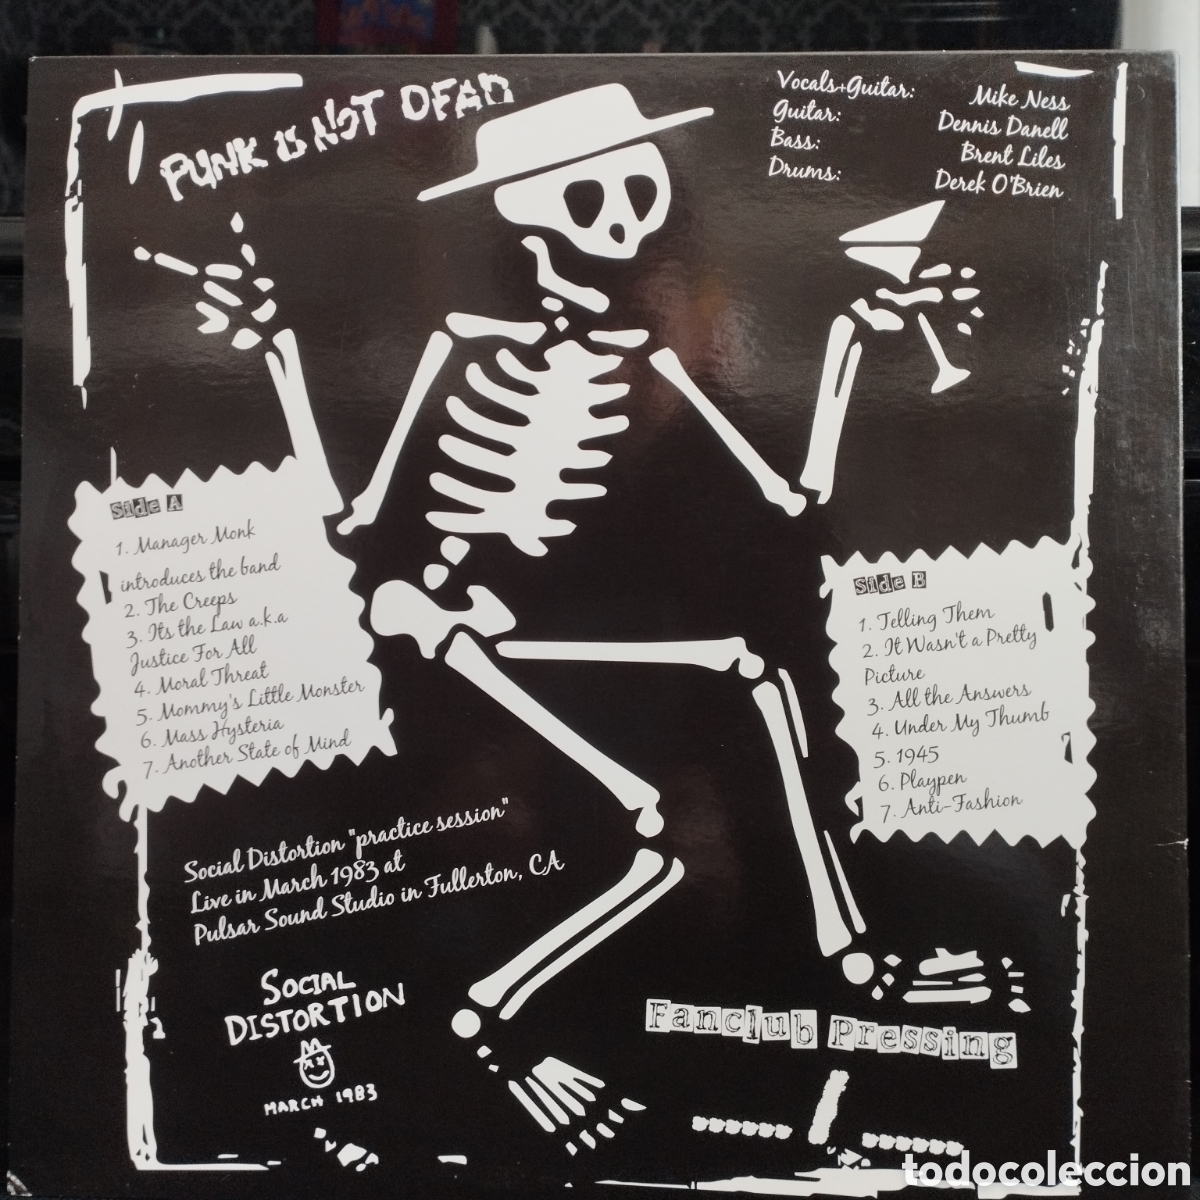 PUNK IS NOT DEAD
Vocals+Guitar: Mike Ness
Guitar: Dennis Danell
Bass: Brent Liles
Drums: Derek O'Brien
Side A
1. Manager Monk
introduces the band
2. The Creeps
3. Its the Law a.k.a
Justice For All
4. Moral Threat
5. Mommy's Little Monster
6. Mass Hysteria
7. Another State of Mind
Side B
1. Telling Them
2. It Wasn't a Pretty
Picture
3. All the Answers
4. Under My Thumb
5. 1945
6. Playpen
7. Anti-Fashion
Social Distortion "practice session"
Live in March 1983 at
Pulsar Sound Studio in Fullerton, CA
SOCIAL
DISTORTION
MARCH 1983
Fanclub Pressing
todocoleccion